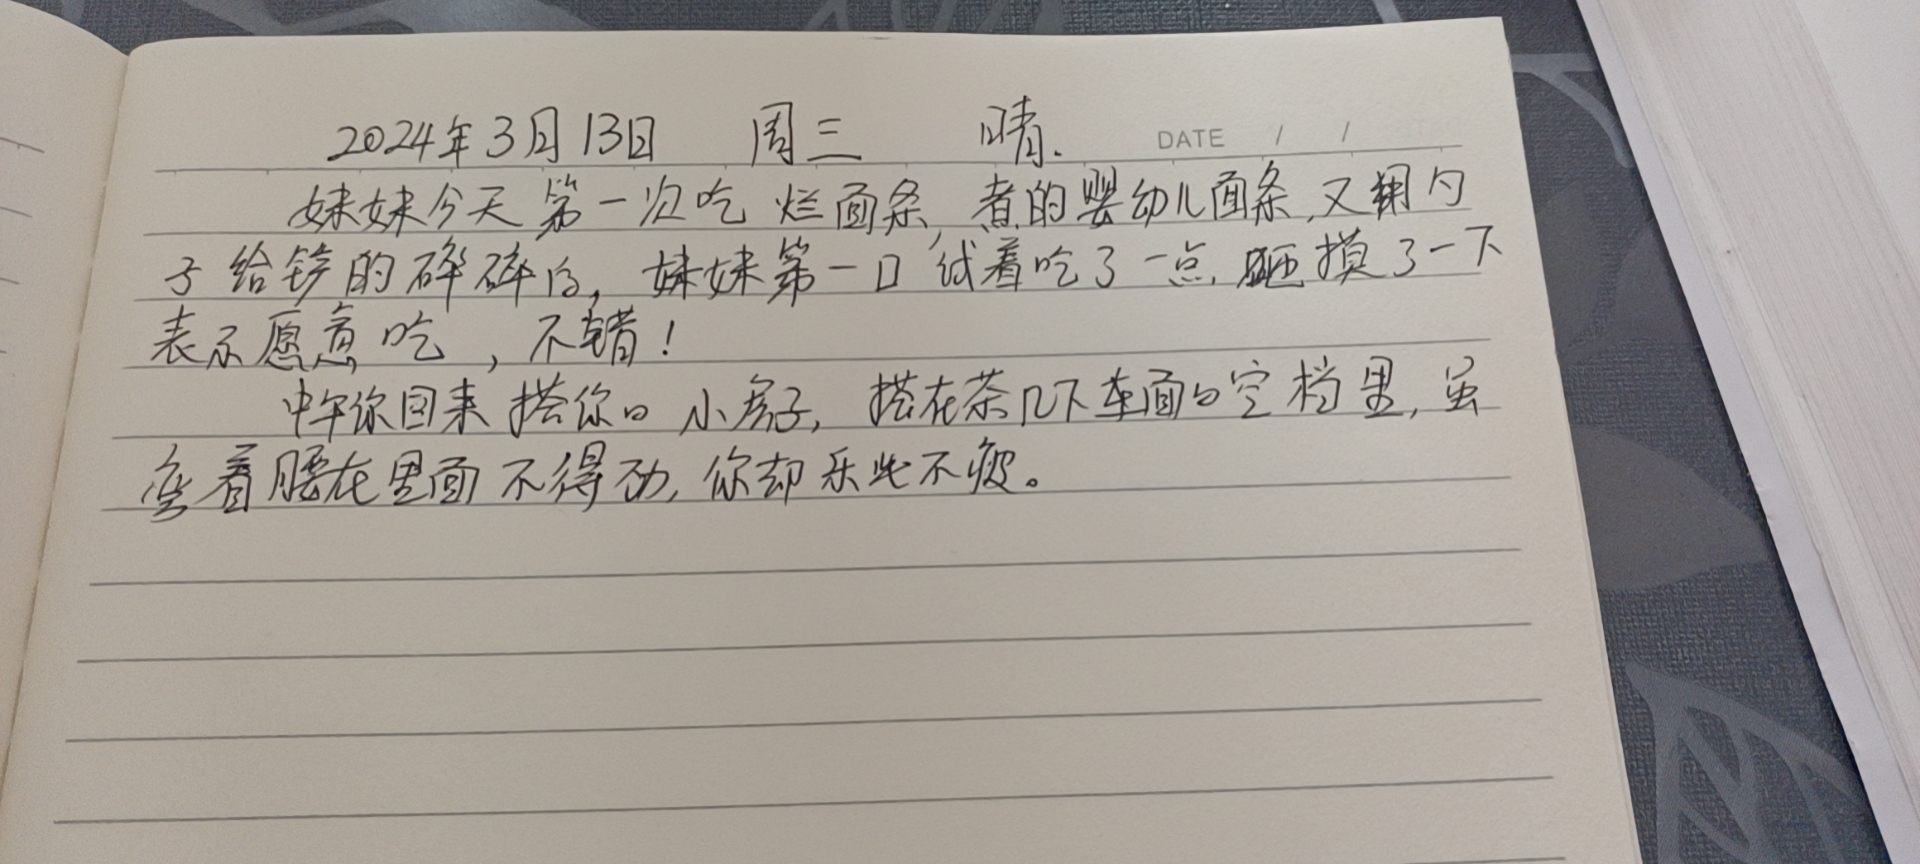 2024年3月13日 周三 晴. DATE / /
妹妹今天第一次吃烂面条,煮的婴幼儿面条,又用勺
子给铲的碎碎的,妹妹第一口试着吃了一点,咂摸了一下
表示愿意吃,不错!
中午你回来搭你的小房子,搭在茶几下车面的空档里,虽
弯着腰在里面不得劲,你却乐此不疲。